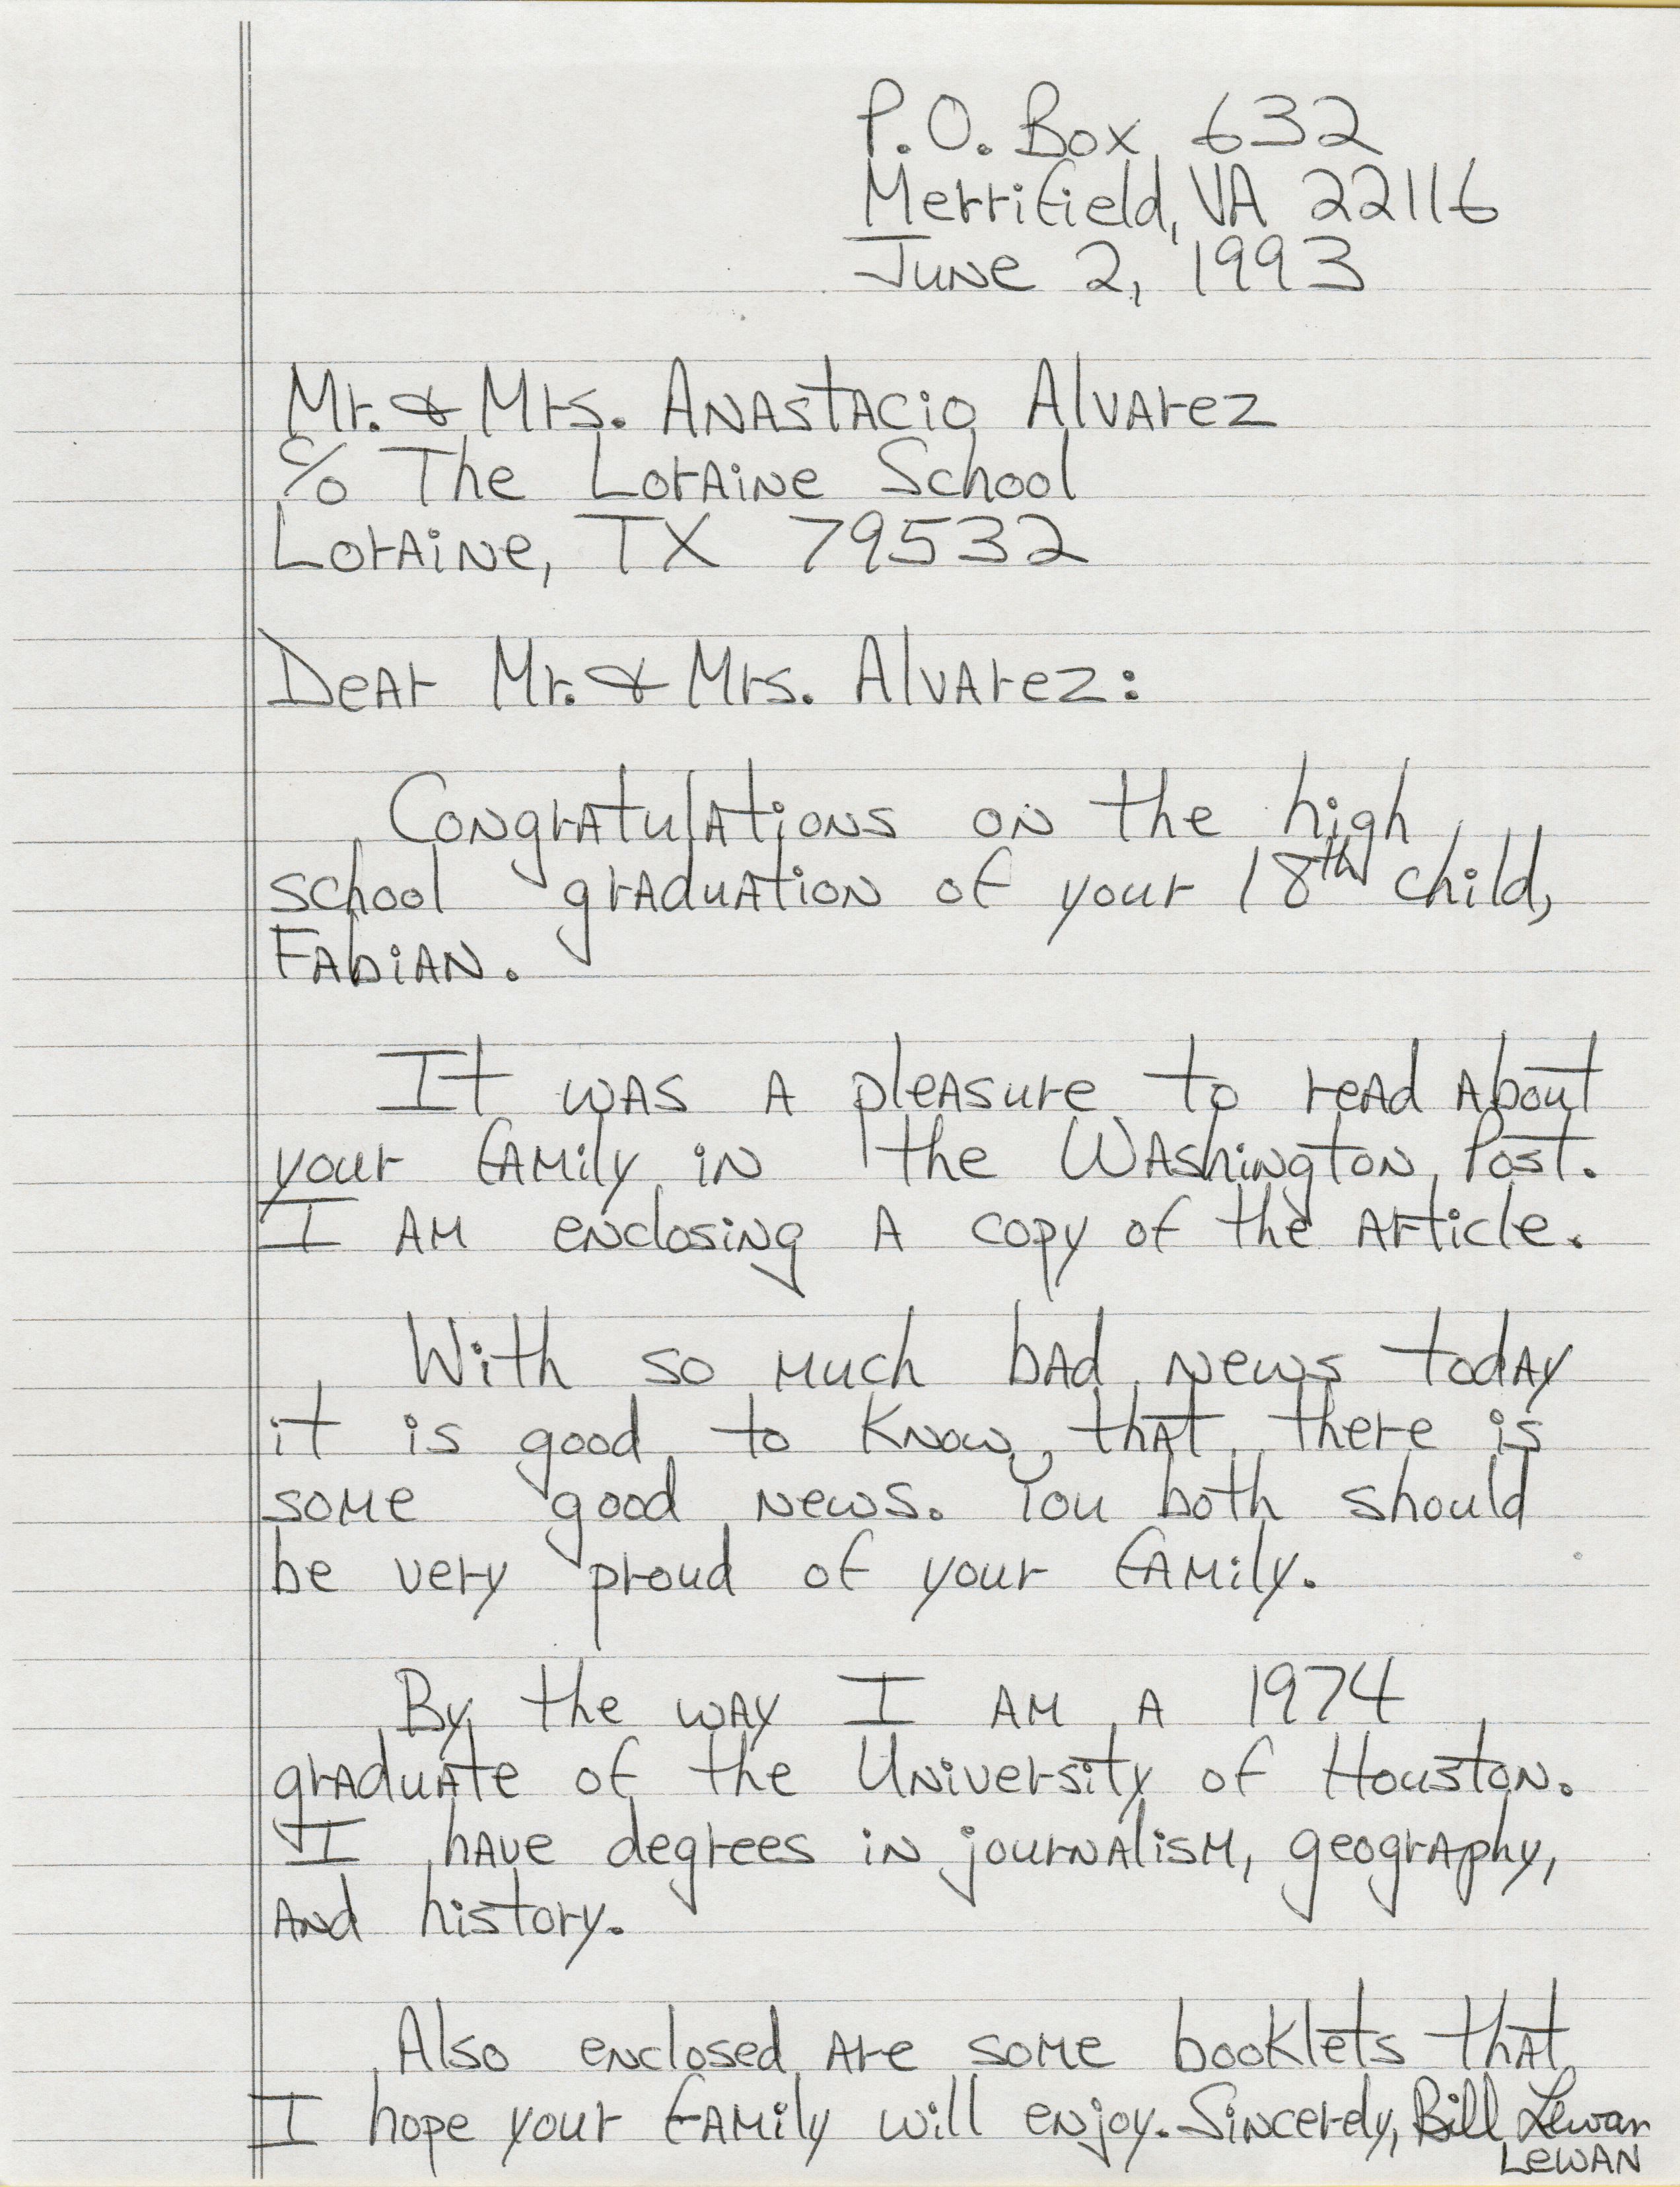 P.O. Box 632
Merrifield, VA 22116
June 2, 1993
Mr. & Mrs. Anastacio Alvarez
c/o The Loraine School
Loraine, TX 79532
Dear Mr. & Mrs. Alvarez:
Congratulations on the high
school graduation of your 18th child,
Fabian.
It was a pleasure to read about
your family in the Washington Post.
I am enclosing a copy of the article.
With so much bad news today
it is good to know that there is
some good news. You both should
be very proud of your family.
By the way I am a 1974
graduate of the University of Houston.
I have degrees in journalism, geography,
and history.
Also enclosed are some booklets that
I hope your family will enjoy. Sincerely, Bill Lewan
Lewan